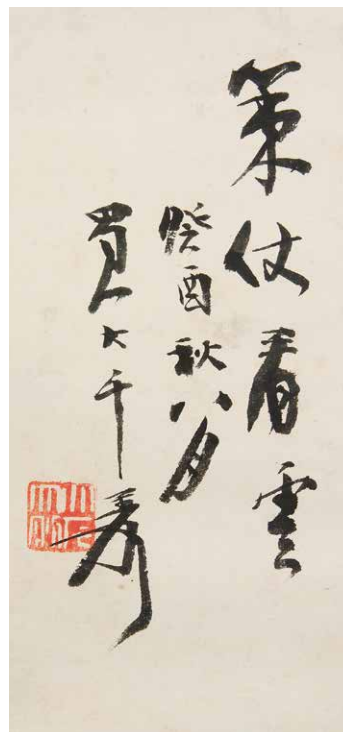 策仗看雲
癸酉秋八月
蜀人大千爰